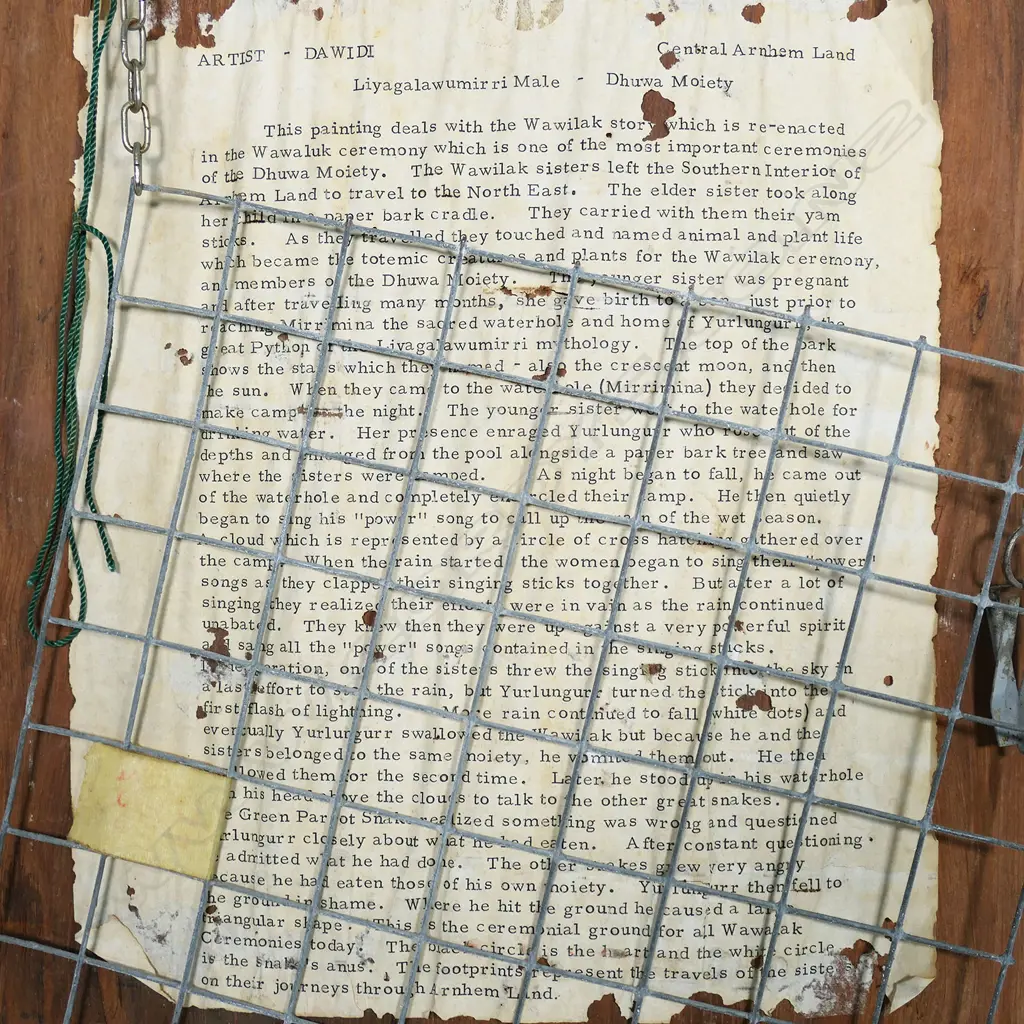 ARTIST - DAWIDI Central Arnhem Land
Liyagalawumirri Male - Dhuwa Moiety
This painting deals with the Wawilak story which is re-enacted
in the Wawaluk ceremony which is one of the most important ceremonies
of the Dhuwa Moiety. The Wawilak sisters left the Southern Interior of
Arnhem Land to travel to the North East. The elder sister took along
her child in a paper bark cradle. They carried with them their yam
sticks. As they travelled they touched and named animal and plant life
which became the totemic creatures and plants for the Wawilak ceremony,
and members of the Dhuwa Moiety. The younger sister was pregnant
and after travelling many months, she gave birth to a son just prior to
reaching Mirrimina the sacred waterhole and home of Yurlungurr, the
great Python of the Liyagalawumirri mythology. The top of the bark
shows the stars which they named - also the crescent moon, and then
the sun. When they came to the waterhole (Mirrimina) they decided to
make camp for the night. The younger sister went to the waterhole for
drinking water. Her presence enraged Yurlungurr who rose out of the
depths and emerged from the pool alongside a paper bark tree and saw
where the sisters were camped. As night began to fall, he came out
of the waterhole and completely encircled their camp. He then quietly
began to sing his "power" song to call up the rain of the wet season.
A cloud which is represented by a circle of cross hatching gathered over
the camp. When the rain started the women began to sing their "power"
songs as they clapped their singing sticks together. But after a lot of
singing they realized their efforts were in vain as the rain continued
unabated. They knew then they were up against a very powerful spirit
and sang all the "power" songs contained in the singing sticks.
In desperation, one of the sisters threw the singing stick into the sky in
a last effort to stop the rain, but Yurlungurr turned the stick into the
first flash of lightning. More rain continued to fall (white dots) and
eventually Yurlungurr swallowed the Wawilak but because he and the
sisters belonged to the same moiety, he vomited them out. He then
swallowed them for the second time. Later he stood up in his waterhole
with his head above the clouds to talk to the other great snakes.
The Green Parrot Snake realized something was wrong and questioned
Yurlungurr closely about what he had eaten. After constant questioning
he admitted what he had done. The other snakes grew very angry
because he had eaten those of his own moiety. Yurlungurr then fell to
the ground in shame. Where he hit the ground he caused a large
triangular shape. This is the ceremonial ground for all Wawalak
Ceremonies today. The black circle is the heart and the white circle
is the snake's anus. The footprints represent the travels of the sisters
on their journeys through Arnhem Land.